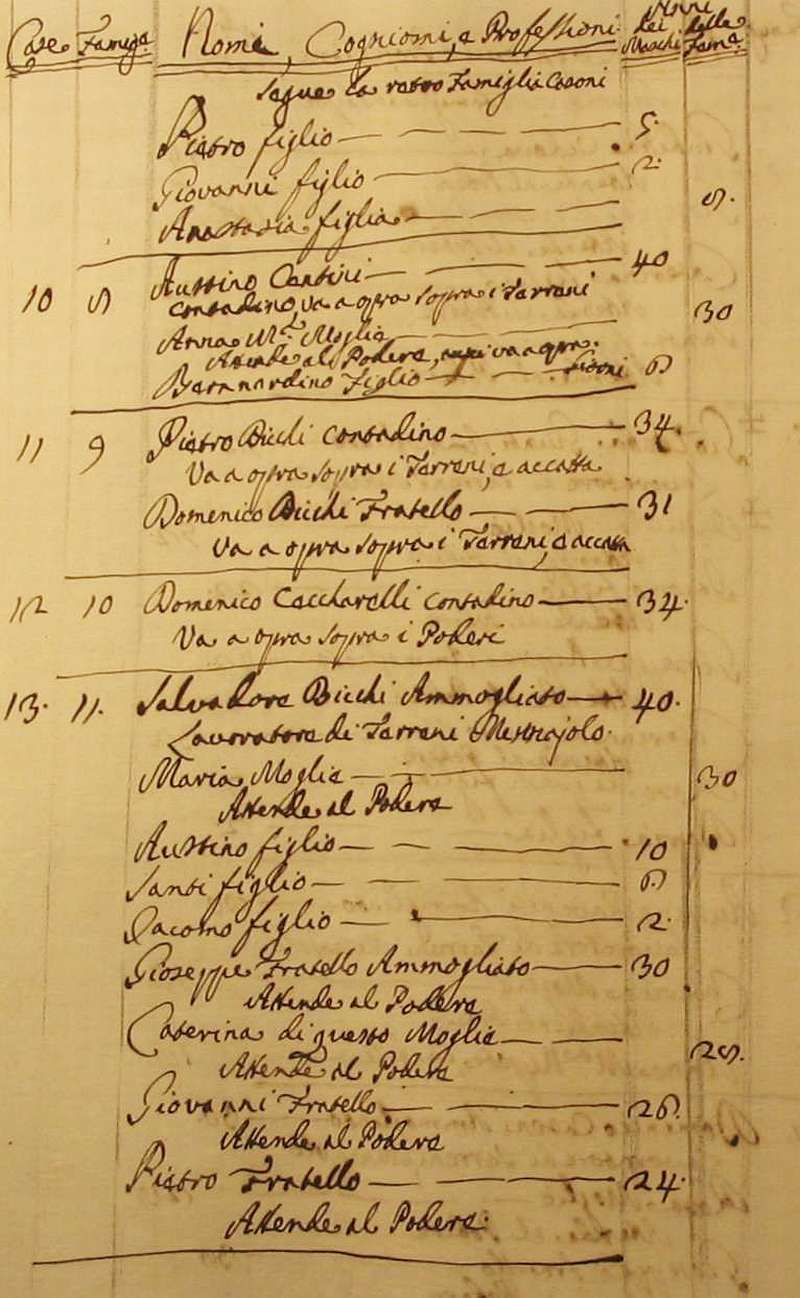 Case Famiga Nomi, Cogniomi, e Professioni Anni dei Maschi delle Fema.
Segue la retro Famiglia Casoni
Pietro figlio 5.
Giovanni figlio 2.
Anastasia figlia 5.
10 5 Austino Cantini 40
Contadino, va a opra sopra i Terreni 30
Anna M.a Moglie
Attende al Podere, e va a opra.
Bernardino Figlio 6
11 9 Pietro Bichi Contadino 34
Va a opra sopra i Terreni, e accatta
Domenico Bichi Fratello 31
Va a opra sopra i Terreni, e accatta
12 10 Domenico Ceccharelli Contadino 34.
Va a opra sopra i Poderi
13. 11. Salvadore Bichi Ammogliato 40.
Lavoratore di Terreni
Maria Moglie 30
Attende al Podere
Austino figlio 10
Santi figlio 6
Jacomo figlio 2.
Gioseppe Fratello Ammogliato 30
Attende al Podere
Caterina di questo Moglie 25.
Attende al Podere
Giovanni Fratello 26.
Attende al Podere
Pietro Fratello 24.
Attende al Podere.